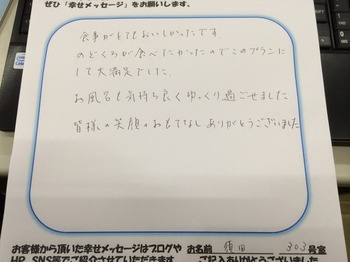 ぜひ「幸せメッセージ」をお願いします。
食事がとてもおいしかったです
のどぐろが食べたかったのでこのプランに
して大満足でした。
お風呂も気持ち良くゆっくり過ごせました
皆様の笑顔のおもてなしありがとうございました
お客様から頂いた幸せメッセージはブログや
HP、SNS等でご紹介させていただきます。
お名前 須田 303号室
ご記入ありがとうございました